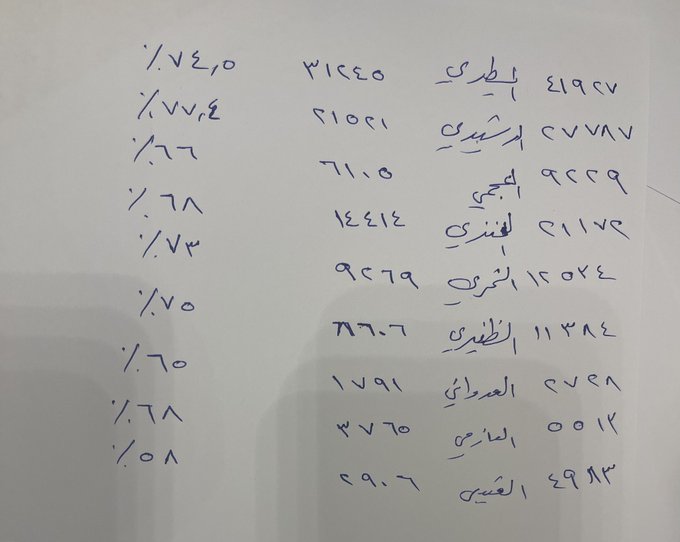 ٤١٩٢٧ المطيري ٣١٢٤٥ ٧٤,٥٪
٢٧٧٨٧ الرشيدي ٢١٥٢١ ٧٧,٤٪
٩٢٢٩ العجمي ٦١٠٥ ٦٦٪
٢١١٧٢ العنزي ١٤٤١٤ ٦٨٪
١٢٥٢٤ الشمري ٩٢٦٩ ٧٣٪
١١٣٨٤ الظفيري ٨٦٠٦ ٧٥٪
٢٧٢٨ العدواني ١٧٩١ ٦٥٪
٥٥١٢ العازمي ٣٧٦٥ ٦٨٪
٤٩٨٣ ٢٩٠٦ ٥٨٪